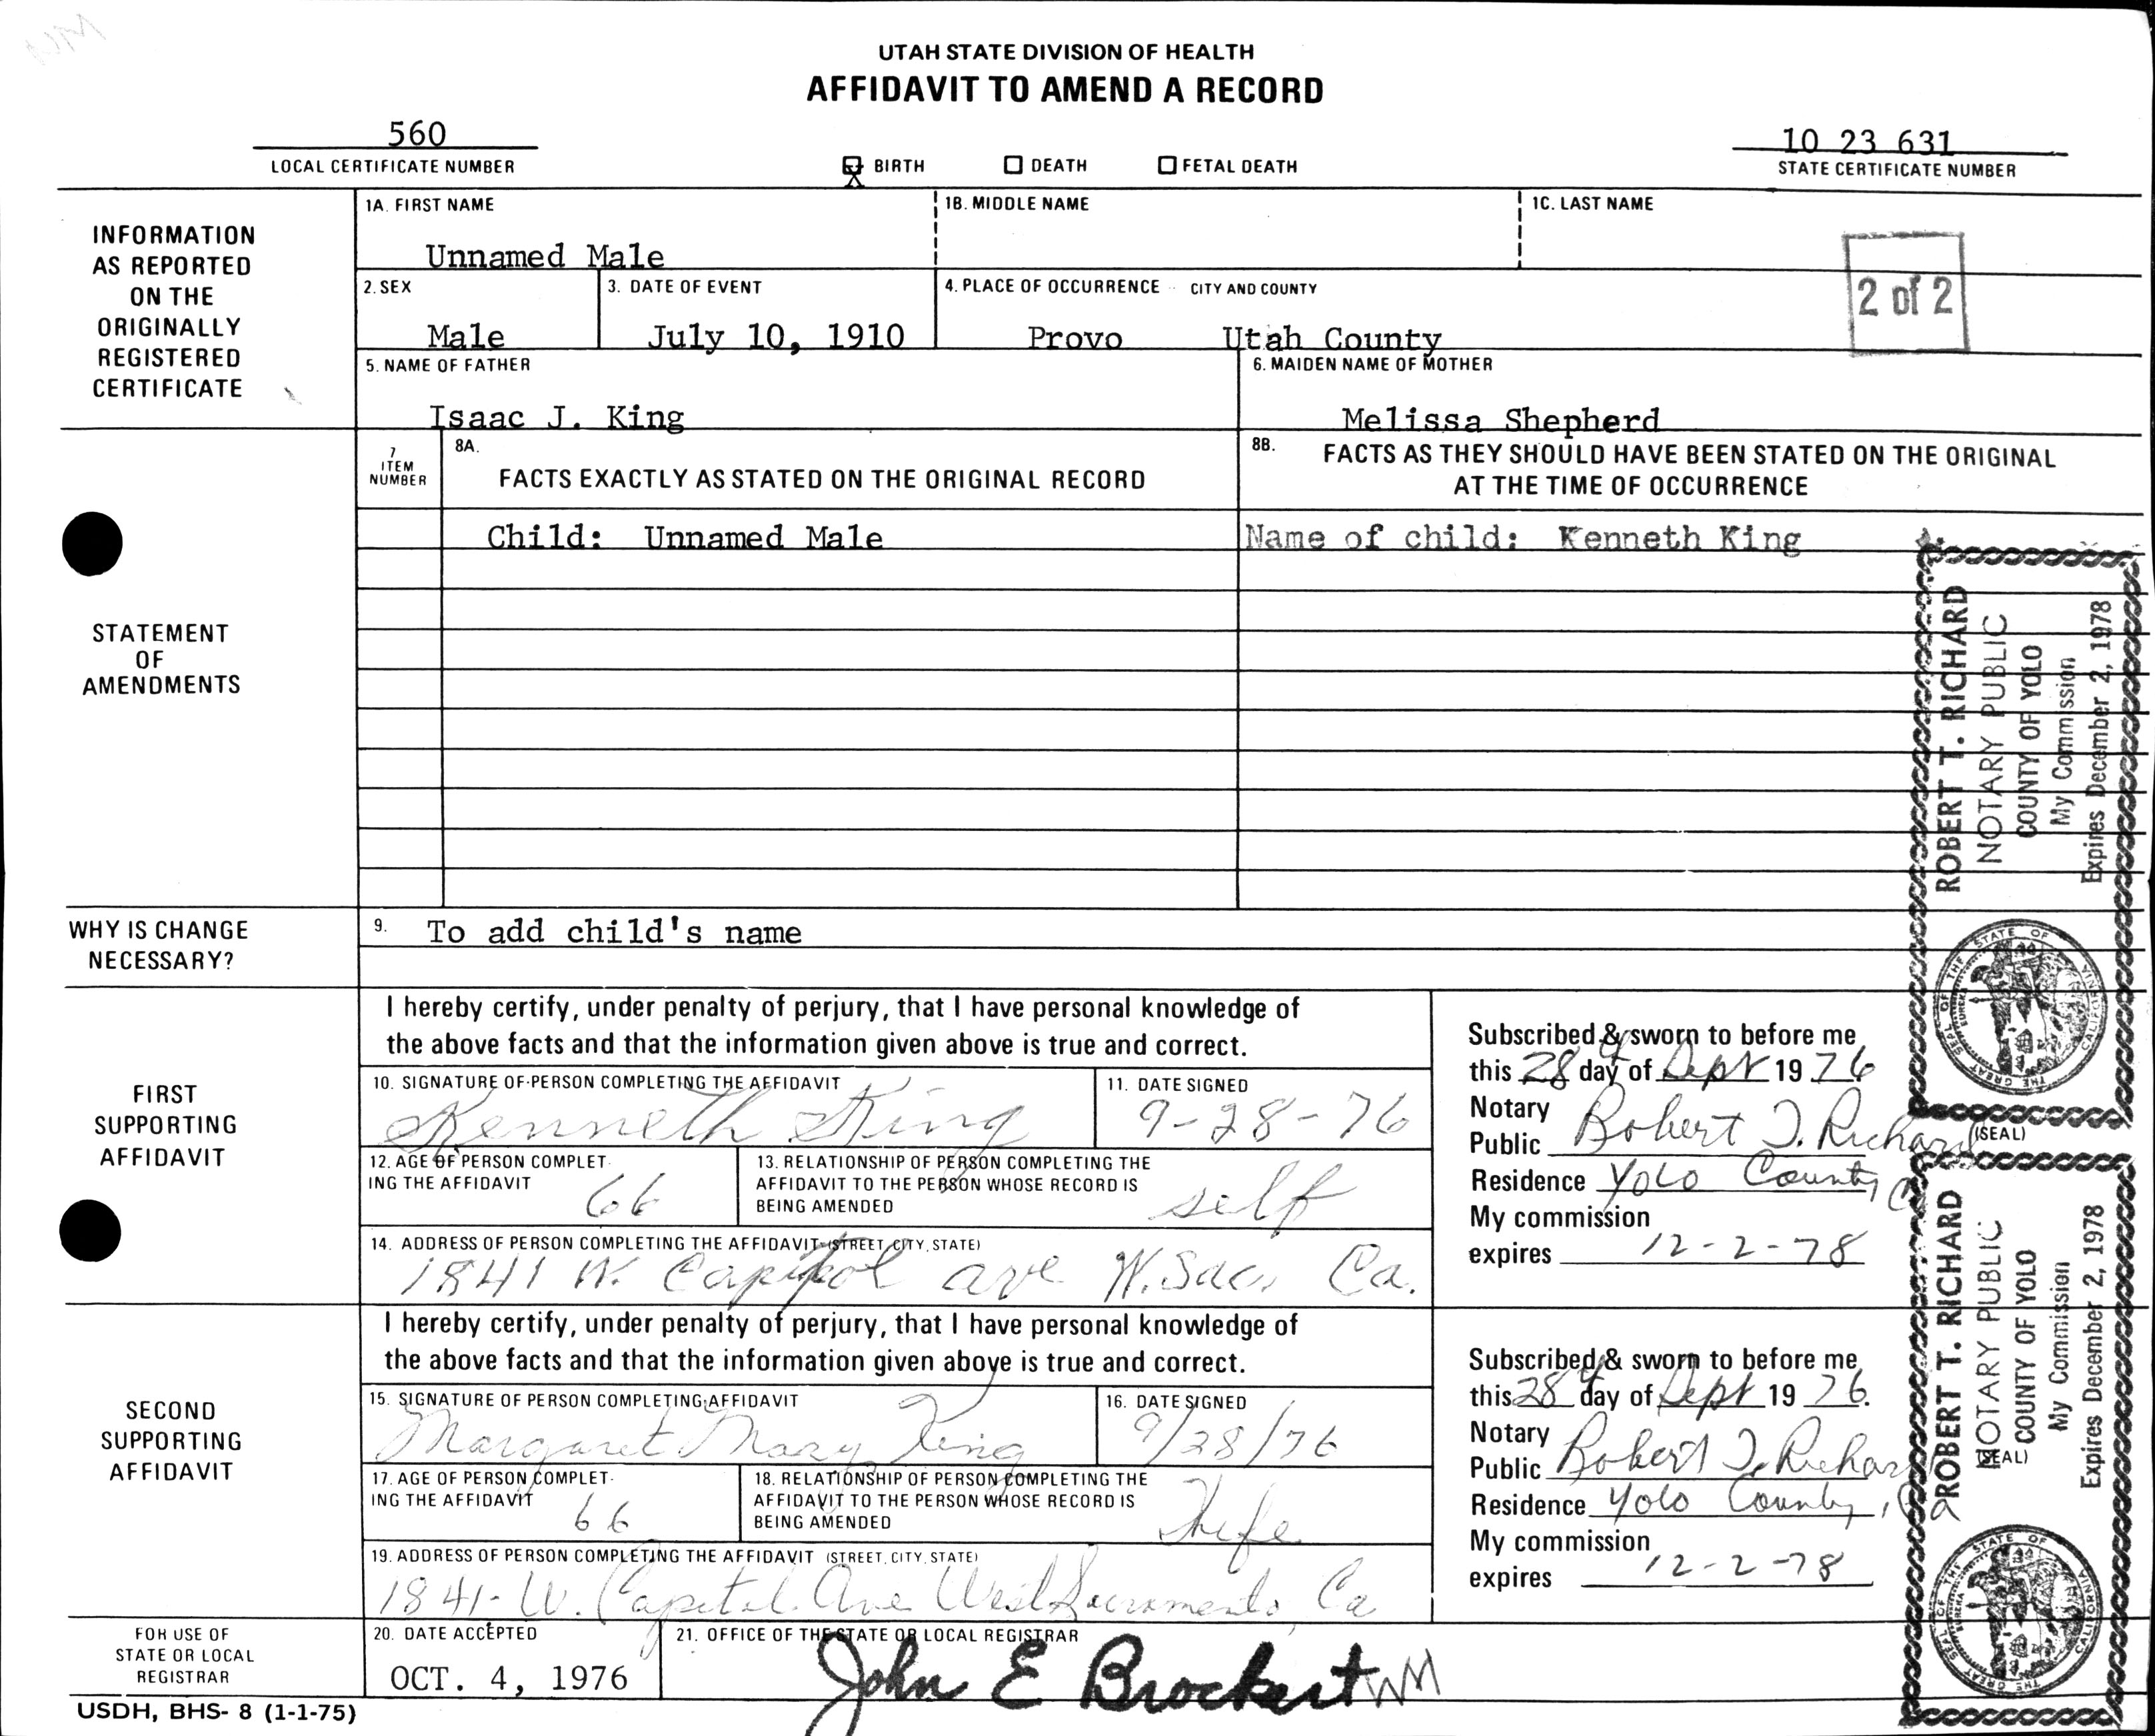 UTAH STATE DIVISION OF HEALTH
AFFIDAVIT TO AMEND A RECORD
560
LOCAL CERTIFICATE NUMBER
X BIRTH
DEATH
FETAL DEATH
10 23 631
STATE CERTIFICATE NUMBER
INFORMATION
AS REPORTED
ON THE
ORIGINALLY
REGISTERED
CERTIFICATE
1A. FIRST NAME
Unnamed Male
1B. MIDDLE NAME
1C. LAST NAME
2 of 2
2. SEX
Male
3. DATE OF EVENT
July 10, 1910
4. PLACE OF OCCURRENCE - CITY AND COUNTY
Provo Utah County
5. NAME OF FATHER
Isaac J. King
6. MAIDEN NAME OF MOTHER
Melissa Shepherd
STATEMENT
OF
AMENDMENTS
7
ITEM
NUMBER
8A.
FACTS EXACTLY AS STATED ON THE ORIGINAL RECORD
8B. FACTS AS THEY SHOULD HAVE BEEN STATED ON THE ORIGINAL
AT THE TIME OF OCCURRENCE
Child: Unnamed Male
Name of child: Kenneth King
WHY IS CHANGE
NECESSARY?
9. To add child's name
FIRST
SUPPORTING
AFFIDAVIT
I hereby certify, under penalty of perjury, that I have personal knowledge of
the above facts and that the information given above is true and correct.
10. SIGNATURE OF PERSON COMPLETING THE AFFIDAVIT
Kenneth King
11. DATE SIGNED
9-28-76
12. AGE OF PERSON COMPLET-
ING THE AFFIDAVIT
66
13. RELATIONSHIP OF PERSON COMPLETING THE
AFFIDAVIT TO THE PERSON WHOSE RECORD IS
BEING AMENDED
self
14. ADDRESS OF PERSON COMPLETING THE AFFIDAVIT (STREET, CITY, STATE)
1841 W. Capitol ave W. Sac, Ca.
Subscribed & sworn to before me
this 28 day of Sept 19 76
Notary
Public Robert T. Richard
(SEAL)
Residence Yolo County, Ca
My commission
expires 12-2-78
ROBERT T. RICHARD
NOTARY PUBLIC
COUNTY OF YOLO
My Commission
Expires December 2, 1978
THE GREAT SEAL OF THE STATE OF CALIFORNIA
EUREKA
SECOND
SUPPORTING
AFFIDAVIT
I hereby certify, under penalty of perjury, that I have personal knowledge of
the above facts and that the information given above is true and correct.
15. SIGNATURE OF PERSON COMPLETING AFFIDAVIT
Margaret Mary King
16. DATE SIGNED
9/28/76
17. AGE OF PERSON COMPLET-
ING THE AFFIDAVIT
66
18. RELATIONSHIP OF PERSON COMPLETING THE
AFFIDAVIT TO THE PERSON WHOSE RECORD IS
BEING AMENDED
Wife
19. ADDRESS OF PERSON COMPLETING THE AFFIDAVIT (STREET, CITY, STATE)
1841- W. Capitol Ave West Sacramento, Ca
Subscribed & sworn to before me
this 28 day of Sept 19 76.
Notary
Public Robert T. Richard
(SEAL)
Residence Yolo County, Ca
My commission
expires 12-2-78
ROBERT T. RICHARD
NOTARY PUBLIC
COUNTY OF YOLO
My Commission
Expires December 2, 1978
SEAL OF THE STATE OF CALIFORNIA
FOR USE OF
STATE OR LOCAL
REGISTRAR
20. DATE ACCEPTED
OCT. 4, 1976
21. OFFICE OF THE STATE OR LOCAL REGISTRAR
John E Brockert WM
USDH, BHS- 8 (1-1-75)